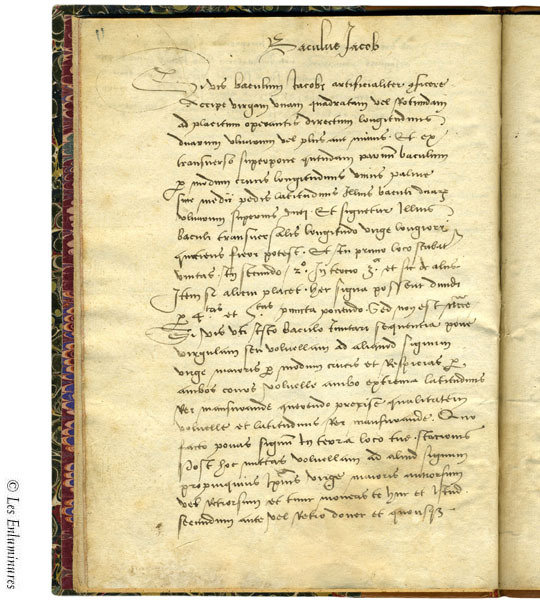 Baculus Jacob
Si vis baculum Jacobi artificialiter conficere
Accipe virgam unam quadratam vel rotundam
ad placitum operantis directam longitudinis
duarum ulnarum vel plus aut minus. Et ex
transverso superpone quendam parvum baculum
per modum crucis longitudinis unius palme
sive medii pedis latitudinis illius baculi
ulnarum Et signetur illius
baculi transversalis longitudo virge longiori
quociens fieri potest. Et in primo loco
unitas. In secundo 2º. In tercio 3ª et sic de aliis
Item si aliem placet. hec signa possunt dividi
per 4 et puncta ponendo. Sed non est
Si vis uti isto baculo sequentia pone
virgulam seu volvellam ad aliquod signum
virge maioris per modum crucis et respicias per
ambos volvelle ambo extrema latitudinis
Rei mensurande
volvelle et latitudinis Rei mensurande. Quo
facto ponas signum in terra loco tue stationis
Post hoc mittas volvellam ad aliud signum
propinquius virge maioris anteriorsum
vel retrorsum et tunc moveas te hinc et
secundum ante vel retro donec et
© Les Enluminures